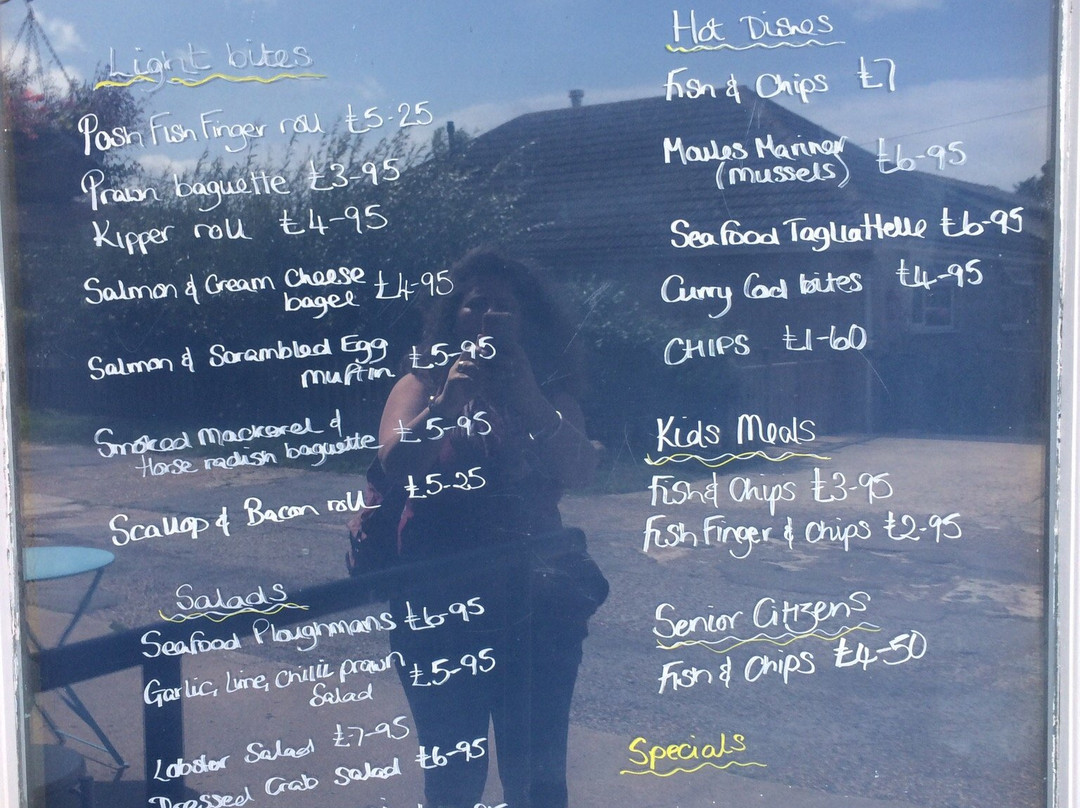 Light bites
Posh Fish Finger roll £5-25
Prawn baguette £3-95
Kipper roll £4-95
Salmon & Cream Cheese £4-95
bagel
Salmon & Scrambled Egg £5-95
Muffin
Smoked Mackerel & £5-95
Horse radish baguette
Scallop & Bacon roll £5-25
Salads
Seafood Ploughmans £6-95
Garlic, Lime, Chilli prawn £5-95
Salad
Lobster Salad £7-95
Dressed Crab Salad £6-95
Hot Dishes
Fish & Chips £7
Moules Mariner £6-95
(mussels)
Seafood Tagliattelle £6-95
Curry Cod bites £4-95
CHIPS £1-60
Kids Meals
Fish & Chips £3-95
Fish Finger & Chips £2-95
Senior Citizens
Fish & Chips £4-50
Specials